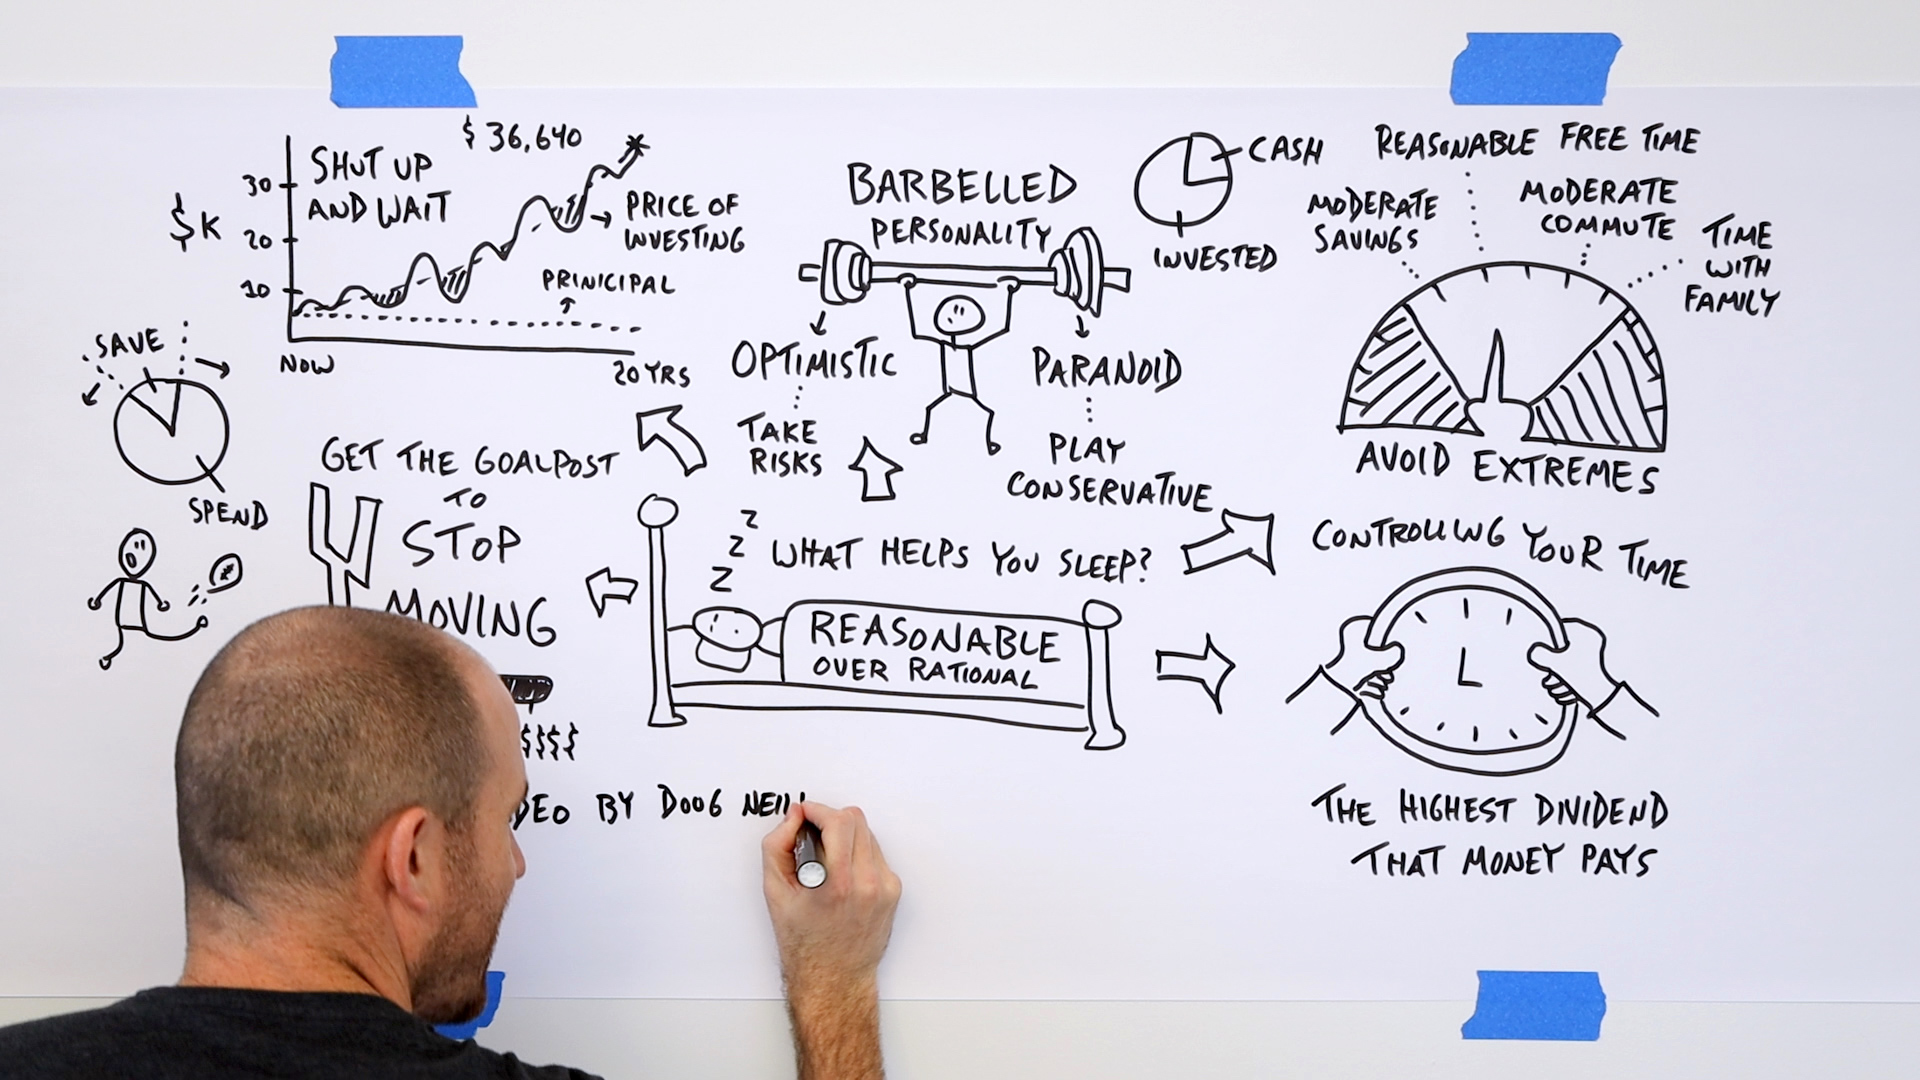 $ 36,640
SHUT UP
AND WAIT
$K
30
20
10
PRICE OF
INVESTING
PRINICIPAL
NOW
20 YRS
SAVE
SPEND
BARBELLED
PERSONALITY
OPTIMISTIC
TAKE
RISKS
PARANOID
PLAY
CONSERVATIVE
CASH
INVESTED
REASONABLE FREE TIME
MODERATE
SAVINGS
MODERATE
COMMUTE
TIME
WITH
FAMILY
AVOID EXTREMES
GET THE GOALPOST
TO
STOP
MOVING
$$$$
Z
Z
Z
WHAT HELPS YOU SLEEP?
REASONABLE
OVER RATIONAL
CONTROLLING YOUR TIME
THE HIGHEST DIVIDEND
THAT MONEY PAYS
BY DOUG